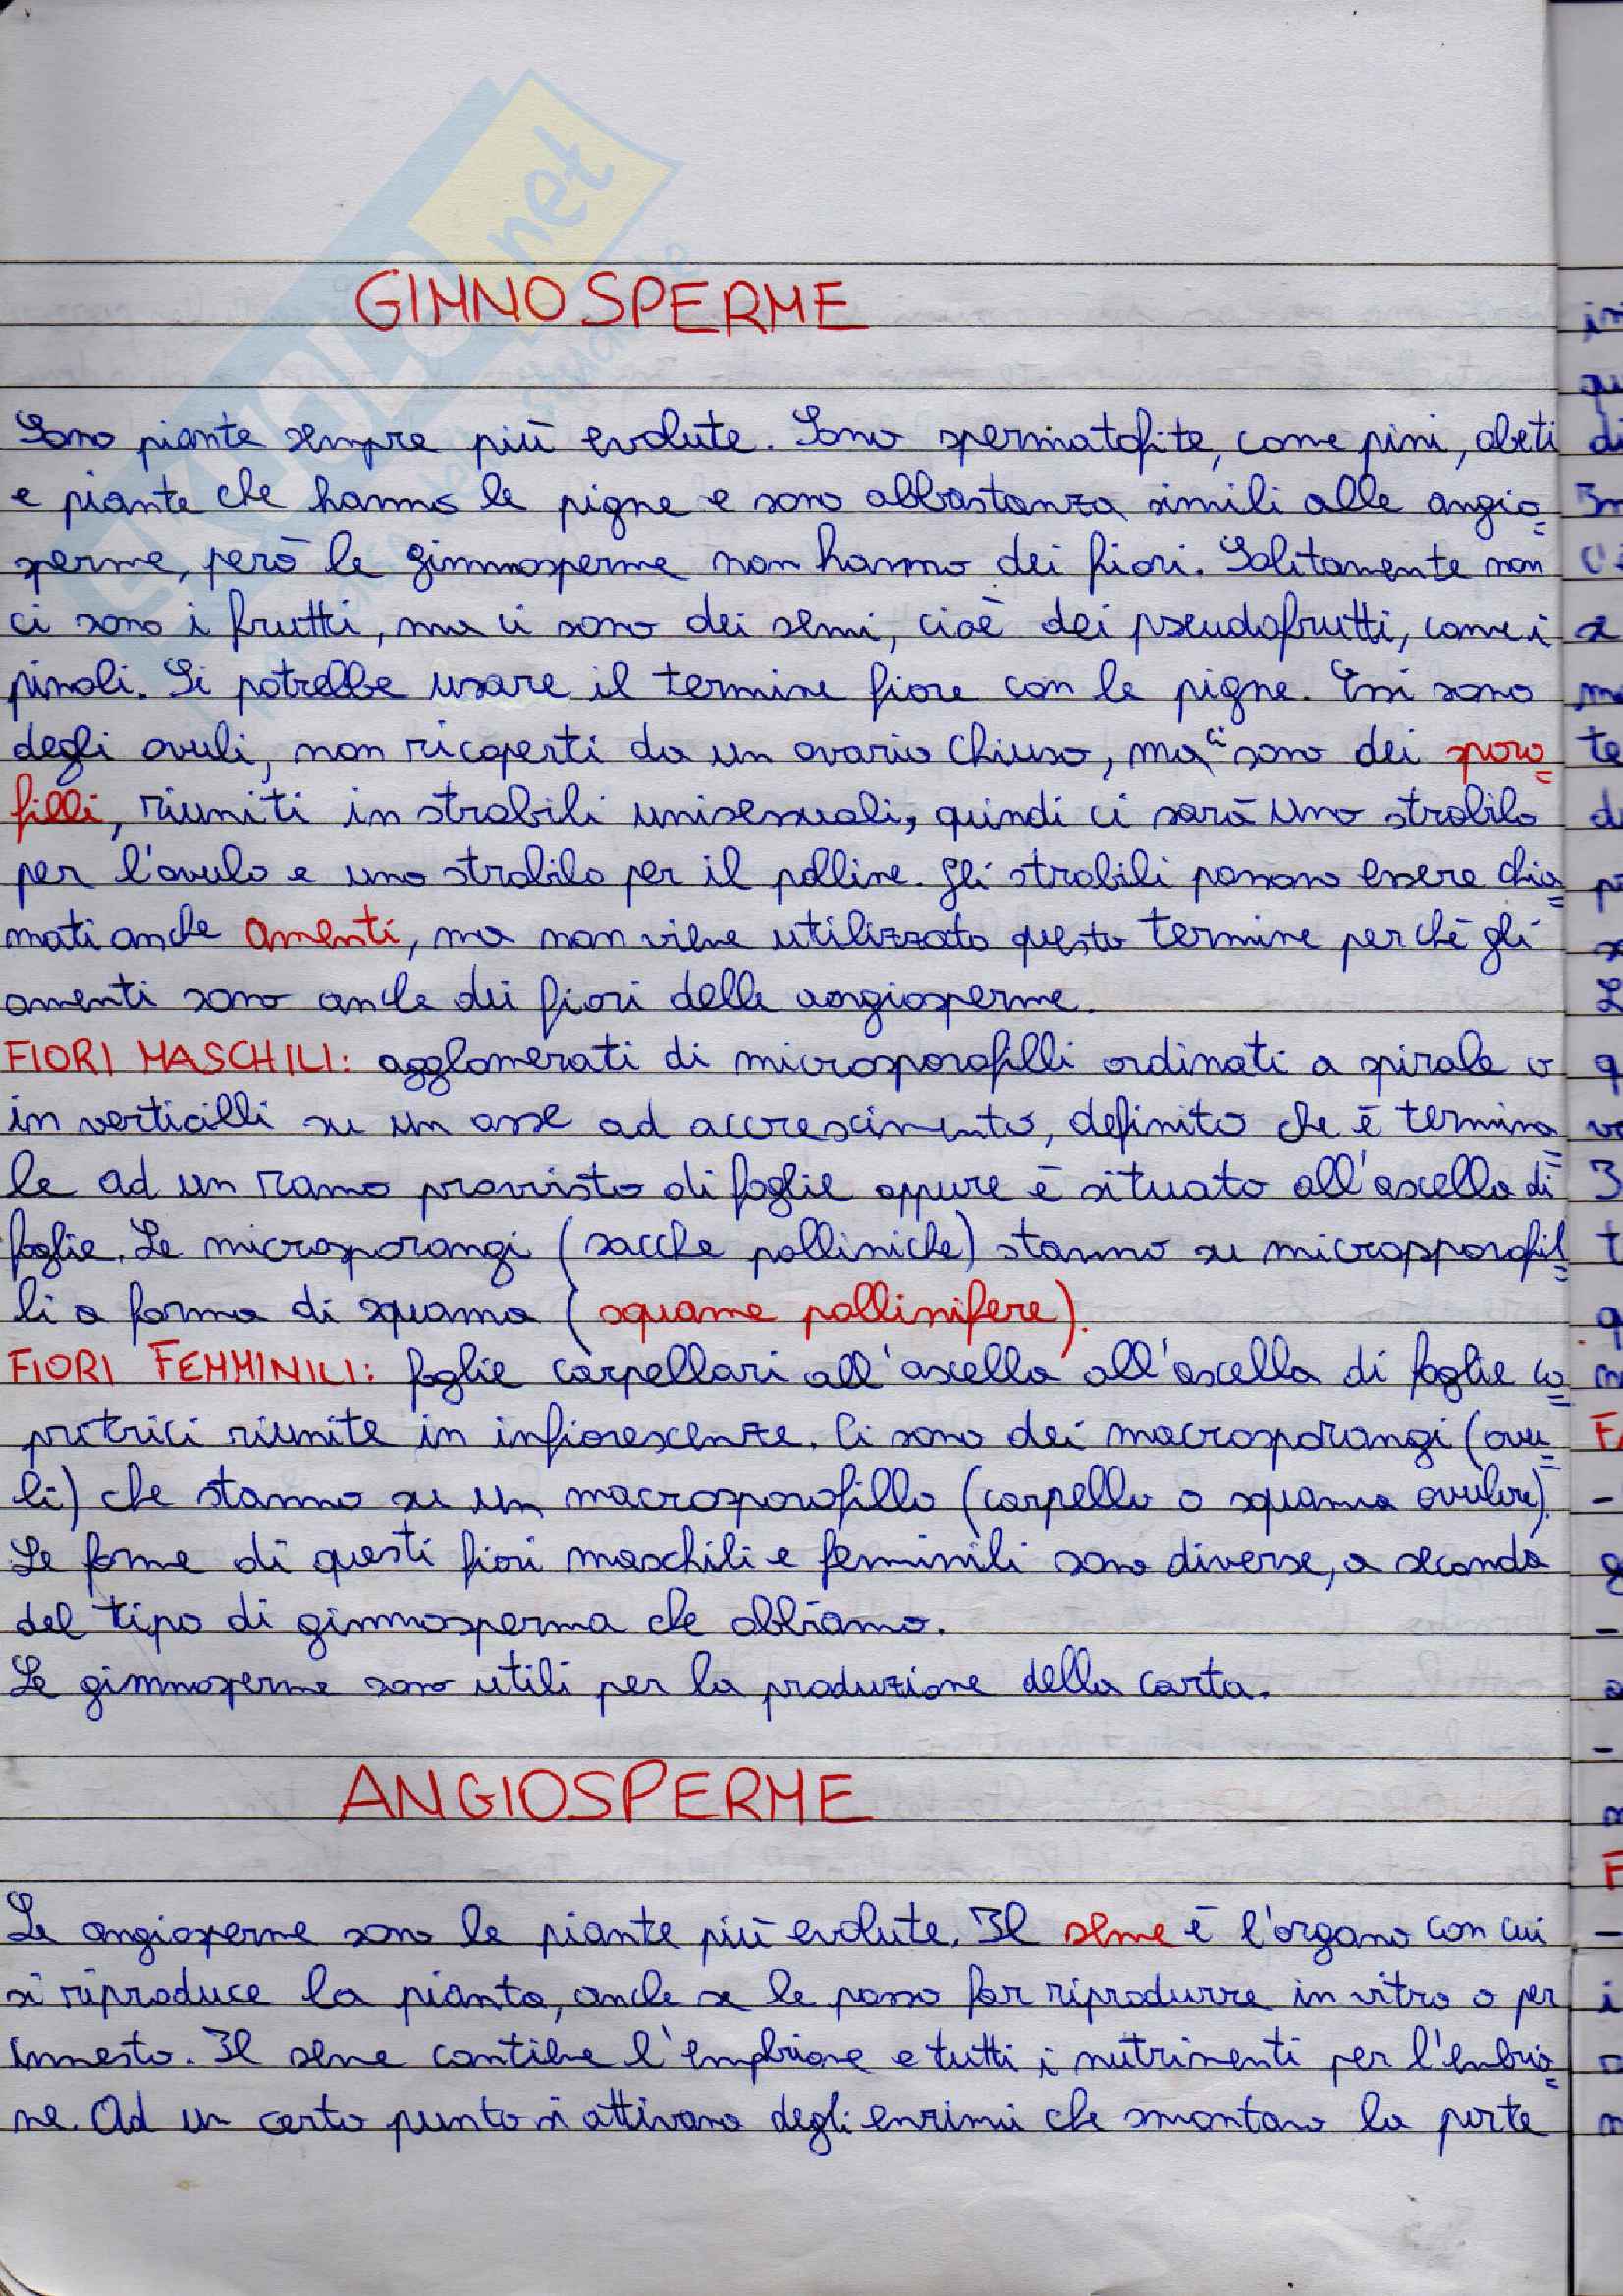 GIMNOSPERME
Sono piante sempre più evolute. Sono spermatofite, come pini, abeti
e piante che hanno le pigne e sono abbastanza simili alle angio=
sperme, però le gimnosperme non hanno dei fiori. Solitamente non
ci sono i frutti, ma ci sono dei semi, cioè dei pseudofrutti, come i
pinoli. Si potrebbe usare il termine fiore con le pigne. Essi sono
degli ovuli, non ricoperti da un ovario chiuso, ma ci sono dei sporo=
filli, riuniti in strobili unisessuali, quindi ci sarà uno strobilo
per l'ovulo e uno strobilo per il polline. Gli strobili possono essere chia=
mati anche amenti, ma non viene utilizzato questo termine perchè gli
amenti sono anche dei fiori delle angiosperme.
FIORI MASCHILI: agglomerati di microsporofilli ordinati a spirale o
in verticilli su un asse ad accrescimento, definito che è termina=
le ad un ramo provvisto di foglie oppure è situato all'ascella di
foglie. Le microsporangi (sacche polliniche) stanno su micropporofil=
li a forma di squama (squame pollinifere).
FIORI FEMMINILI: foglie carpellari all'ascella all'ascella di foglie co=
pritrici riunite in infiorescenze. Ci sono dei macrosporangi (ovu=
li) che stanno su un macrosporofillo (carpello o squama ovulare).
Le forme di questi fiori maschili e femminili sono diverse, a seconda
del tipo di gimnosperma che abbiamo.
Le gimnosperme sono utili per la produzione della carta.
ANGIOSPERME
Le angiosperme sono le piante più evolute. Il seme è l'organo con cui
si riproduce la pianta, anche se le posso far riprodurre in vitro o per
innesto. Il seme contiene l'embrione e tutti i nutrimenti per l'embrio=
ne. Ad un certo punto si attivano degli enzimi che smontano la parte